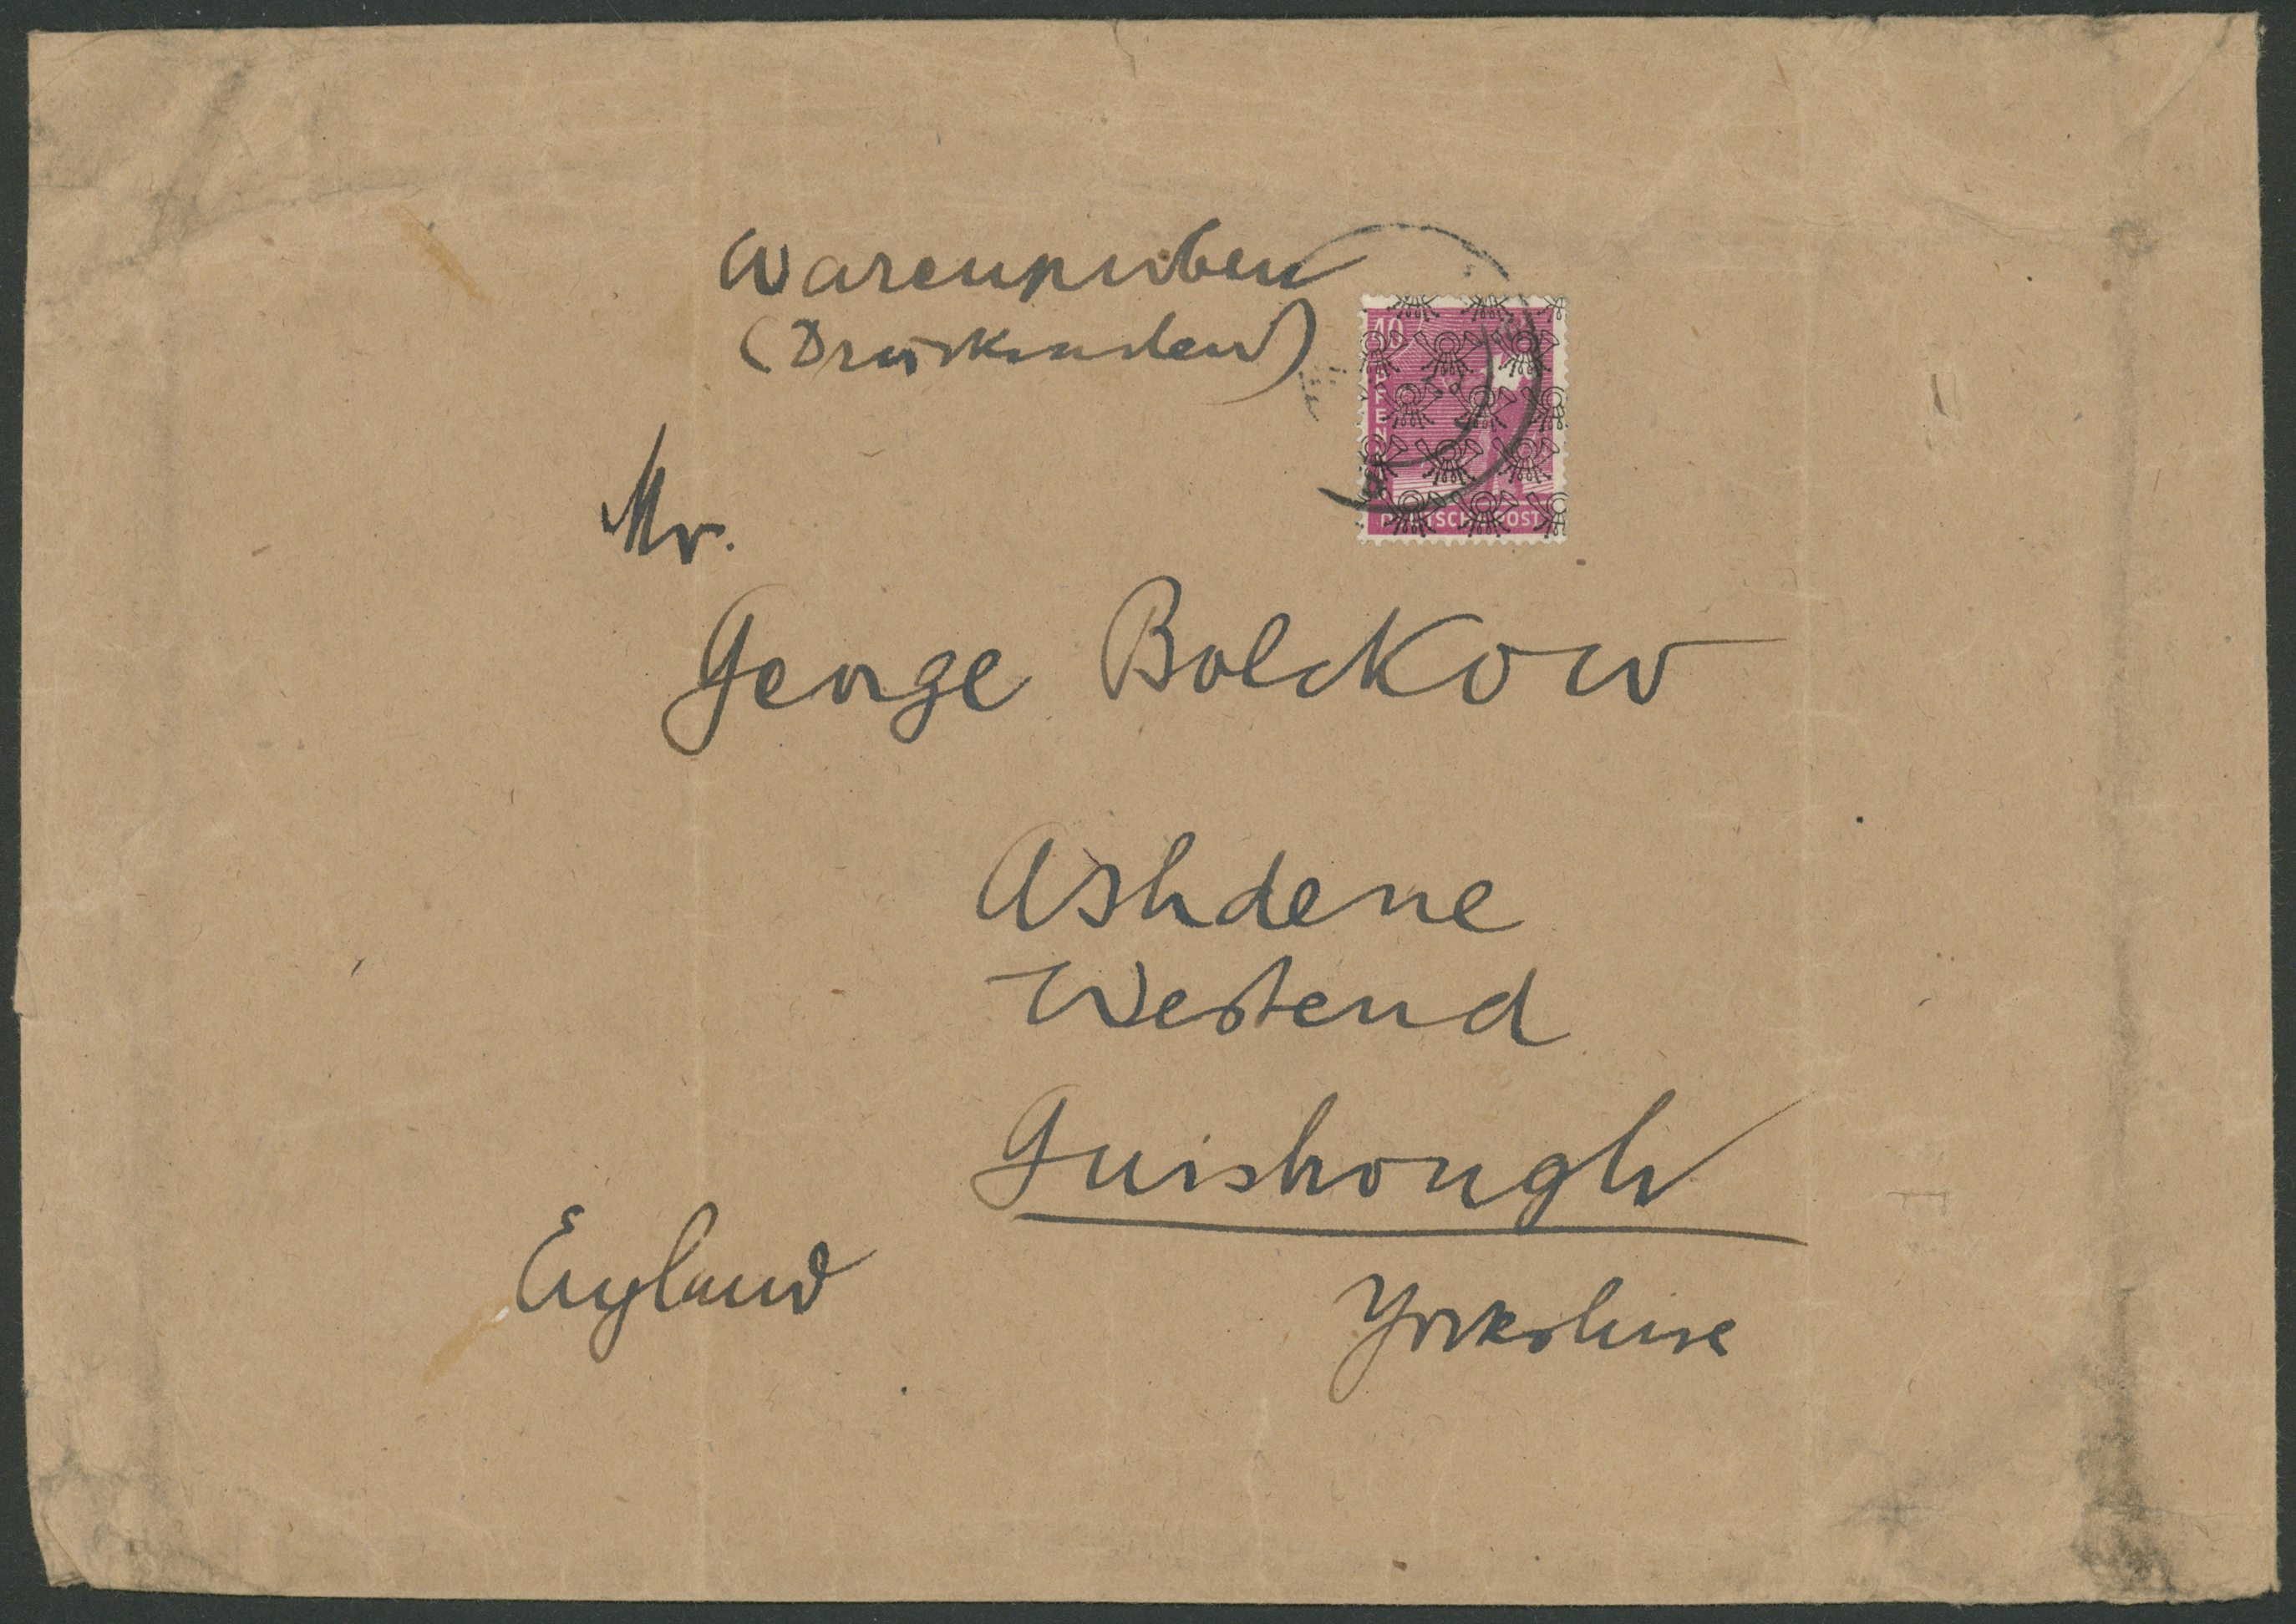 Warenproben
(Drucksachen)
40
PFENNIG
DEUTSCHE POST
Mr.
George Bolckow
Ashdene
Westend
Guisbrough
England
Yorkshire